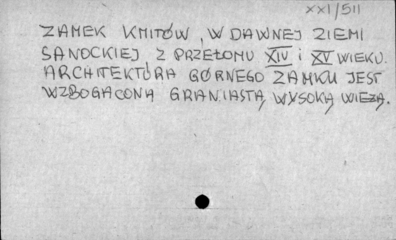 XXI/511
ZAMEK KMITÓW, W DAWNEJ ZIEMI
SANOCKIEJ Z PRZEŁOMU XIV i XV WIEKU.
ARCHITEKTURA GÓRNEGO ZAMKU JEST
WZBOGACONA GRANIASTĄ WYSOKĄ WIEŻĄ.